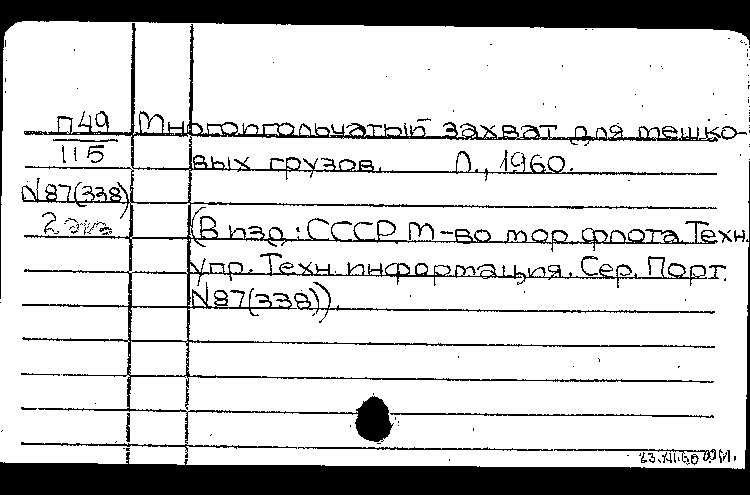 П49 Многоигольчатый захват для мешко-
115 вых грузов. Л., 1960.
N87(338)
2 экз (В изд: СССР М-во мор флота Техн.
упр. Техн. информация. Сер. Порт.
N87(338)).
23.XII.60